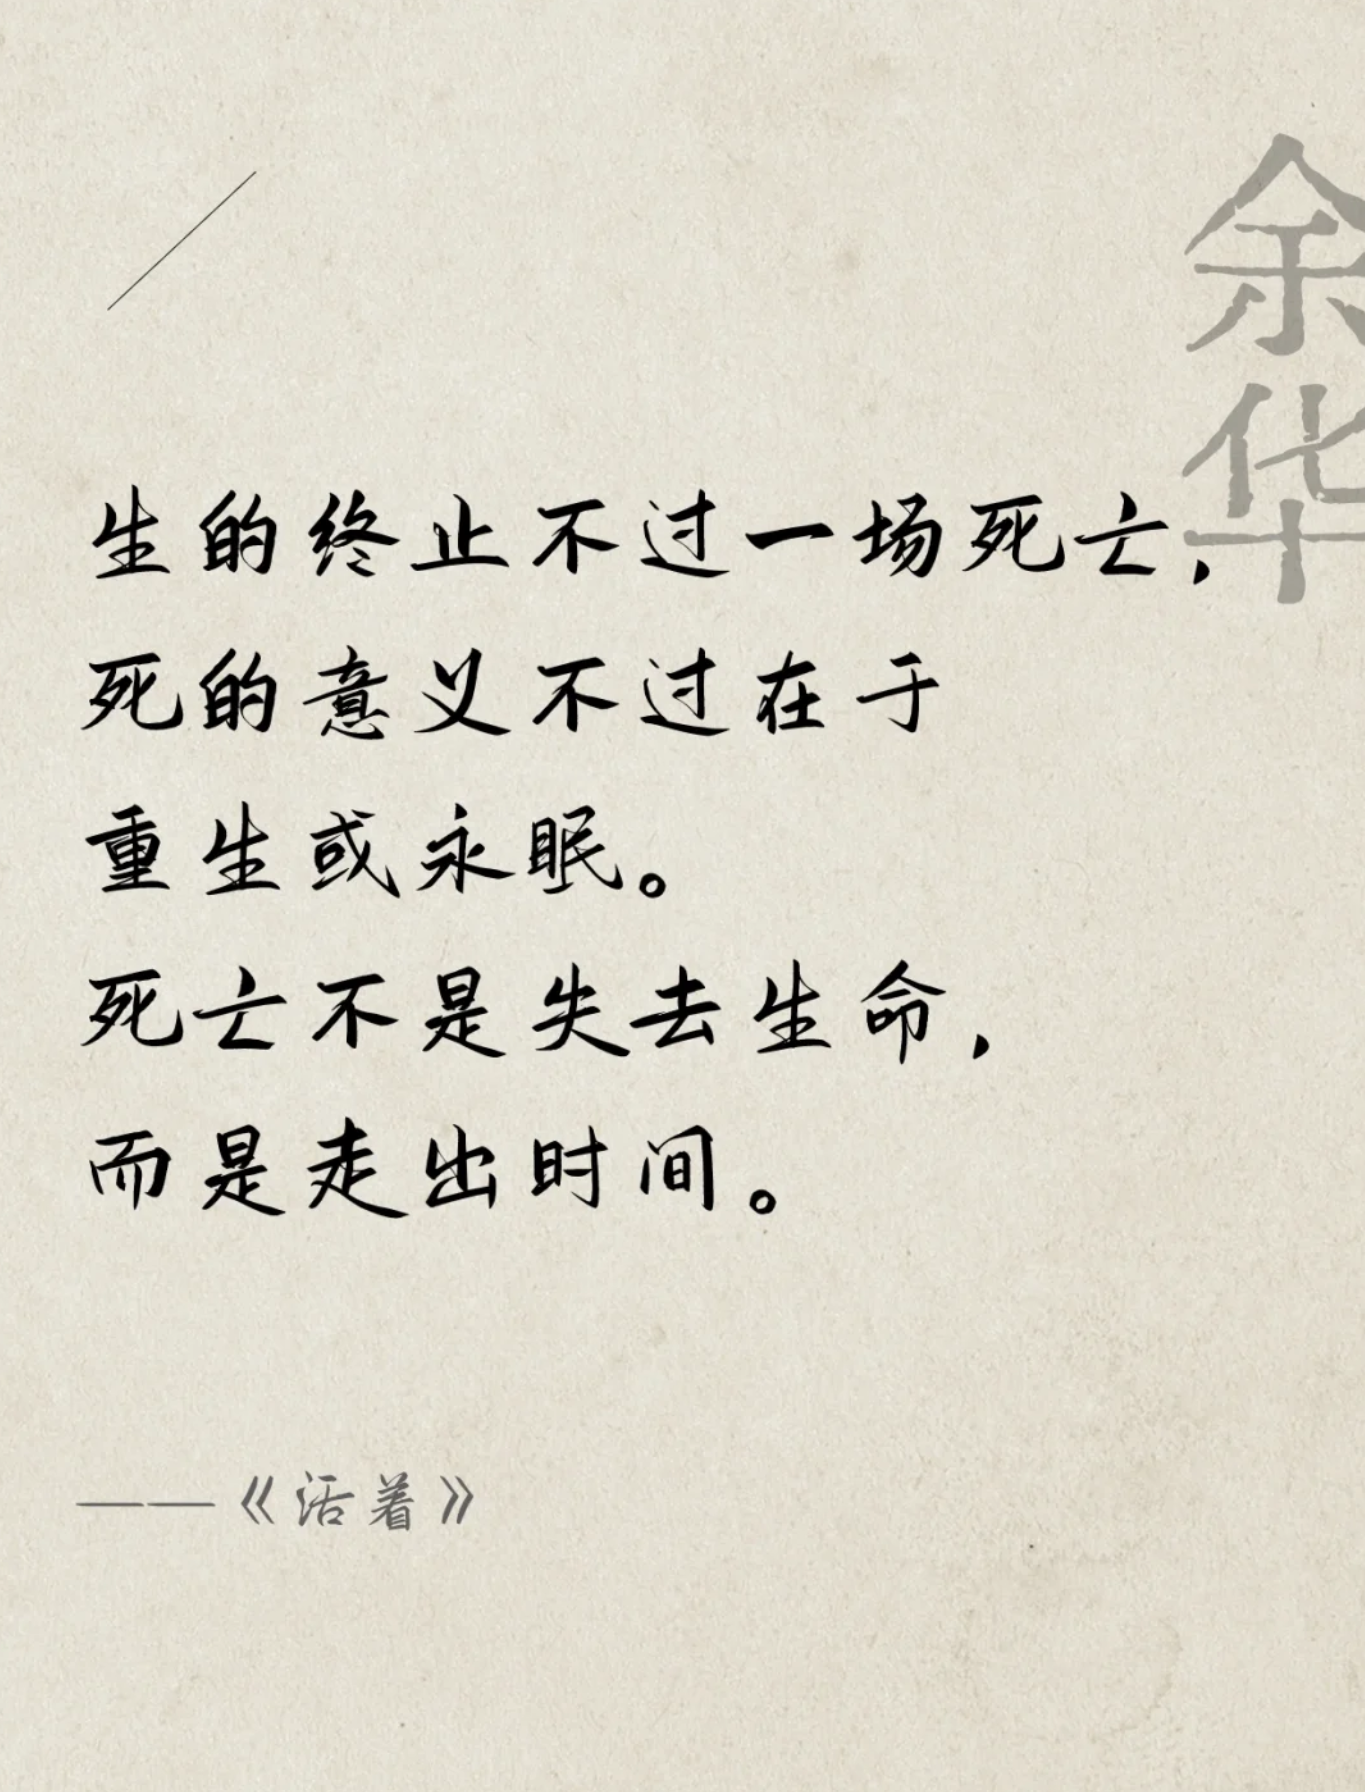 余华
生的终止不过一场死亡，
死的意义不过在于
重生或永眠。
死亡不是失去生命，
而是走出时间。
——《活着》